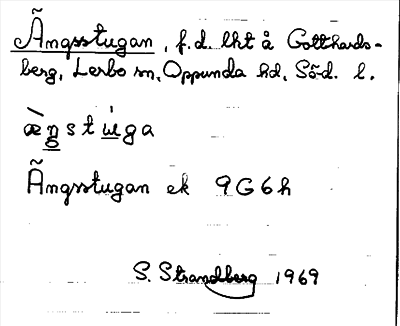 Ängsstugan, f.d. lht å Gotthards-
berg, Lerbo sn, Oppunda hd, Söd. l.
æ̀ŋstúga
Ängsstugan ek 9G6h
S. Strandberg 1969